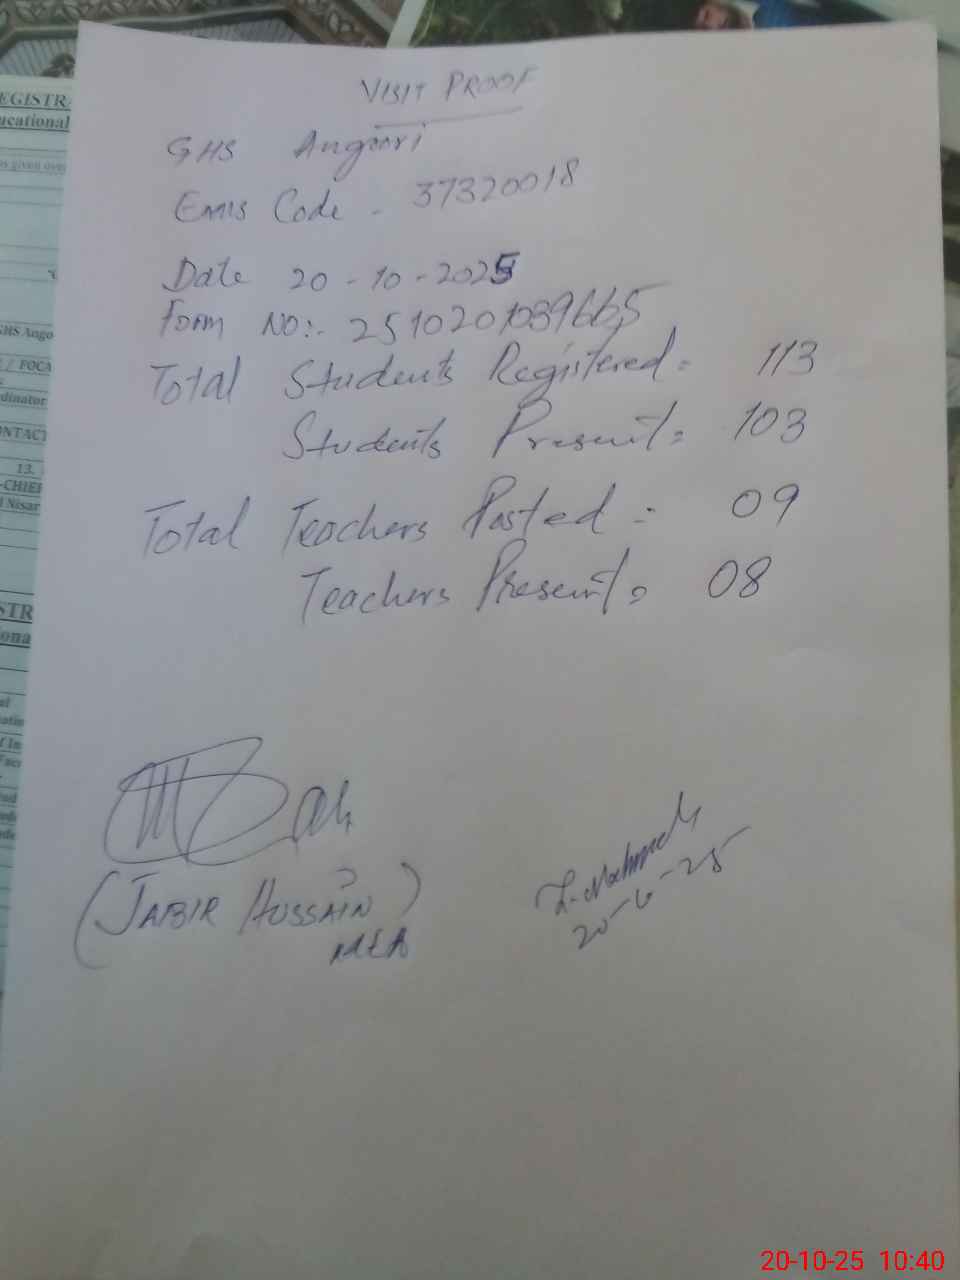 VISIT PROOF
GHS Angoori
EMIS Code - 37320018
Date 20-10-2025
Form NO:- 2510201039665
Total Students Registered = 113
Students Present = 103
Total Teachers Posted = 09
Teachers Present = 08
(JABIR HUSSAIN)
MEA
Z-Mahmood
20-6-25
EGISTRA
ucational
es given over
GHS Ango
/ FOCA
dinator
ONTACT
13.
-CHIEF
l Nisar
STR
iona
20-10-25 10:40